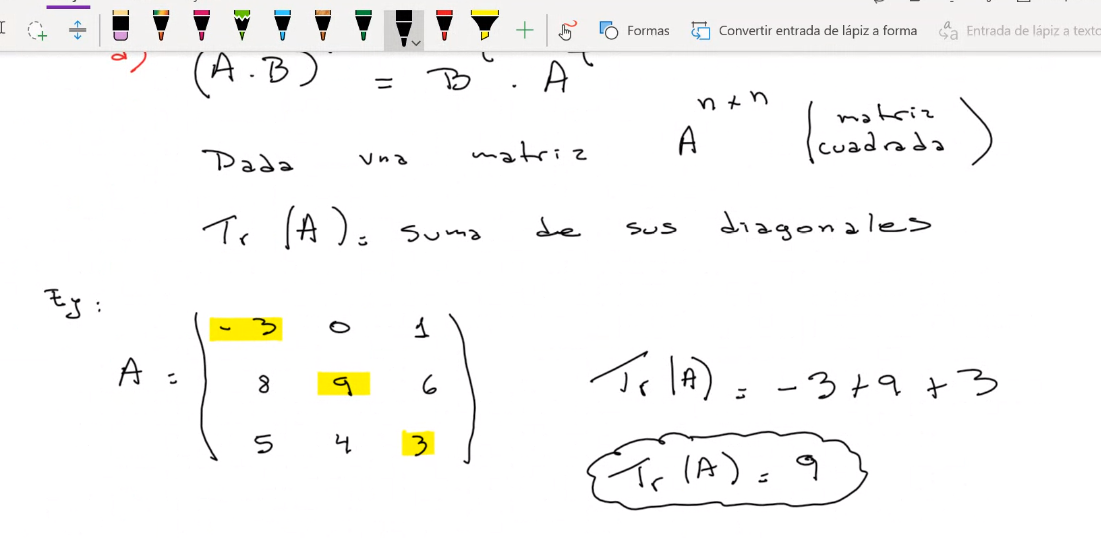 Formas Convertir entrada de lápiz a forma Entrada de lápiz a texto
a) (A.B)ᵗ = Bᵗ . Aᵗ
Dada una matriz A^{n×n} (matriz cuadrada)
Tr (A) = suma de sus diagonales
Ej:
A = ( -3 0 1
8 9 6
5 4 3 )
Tr (A) = -3 + 9 + 3
Tr (A) = 9